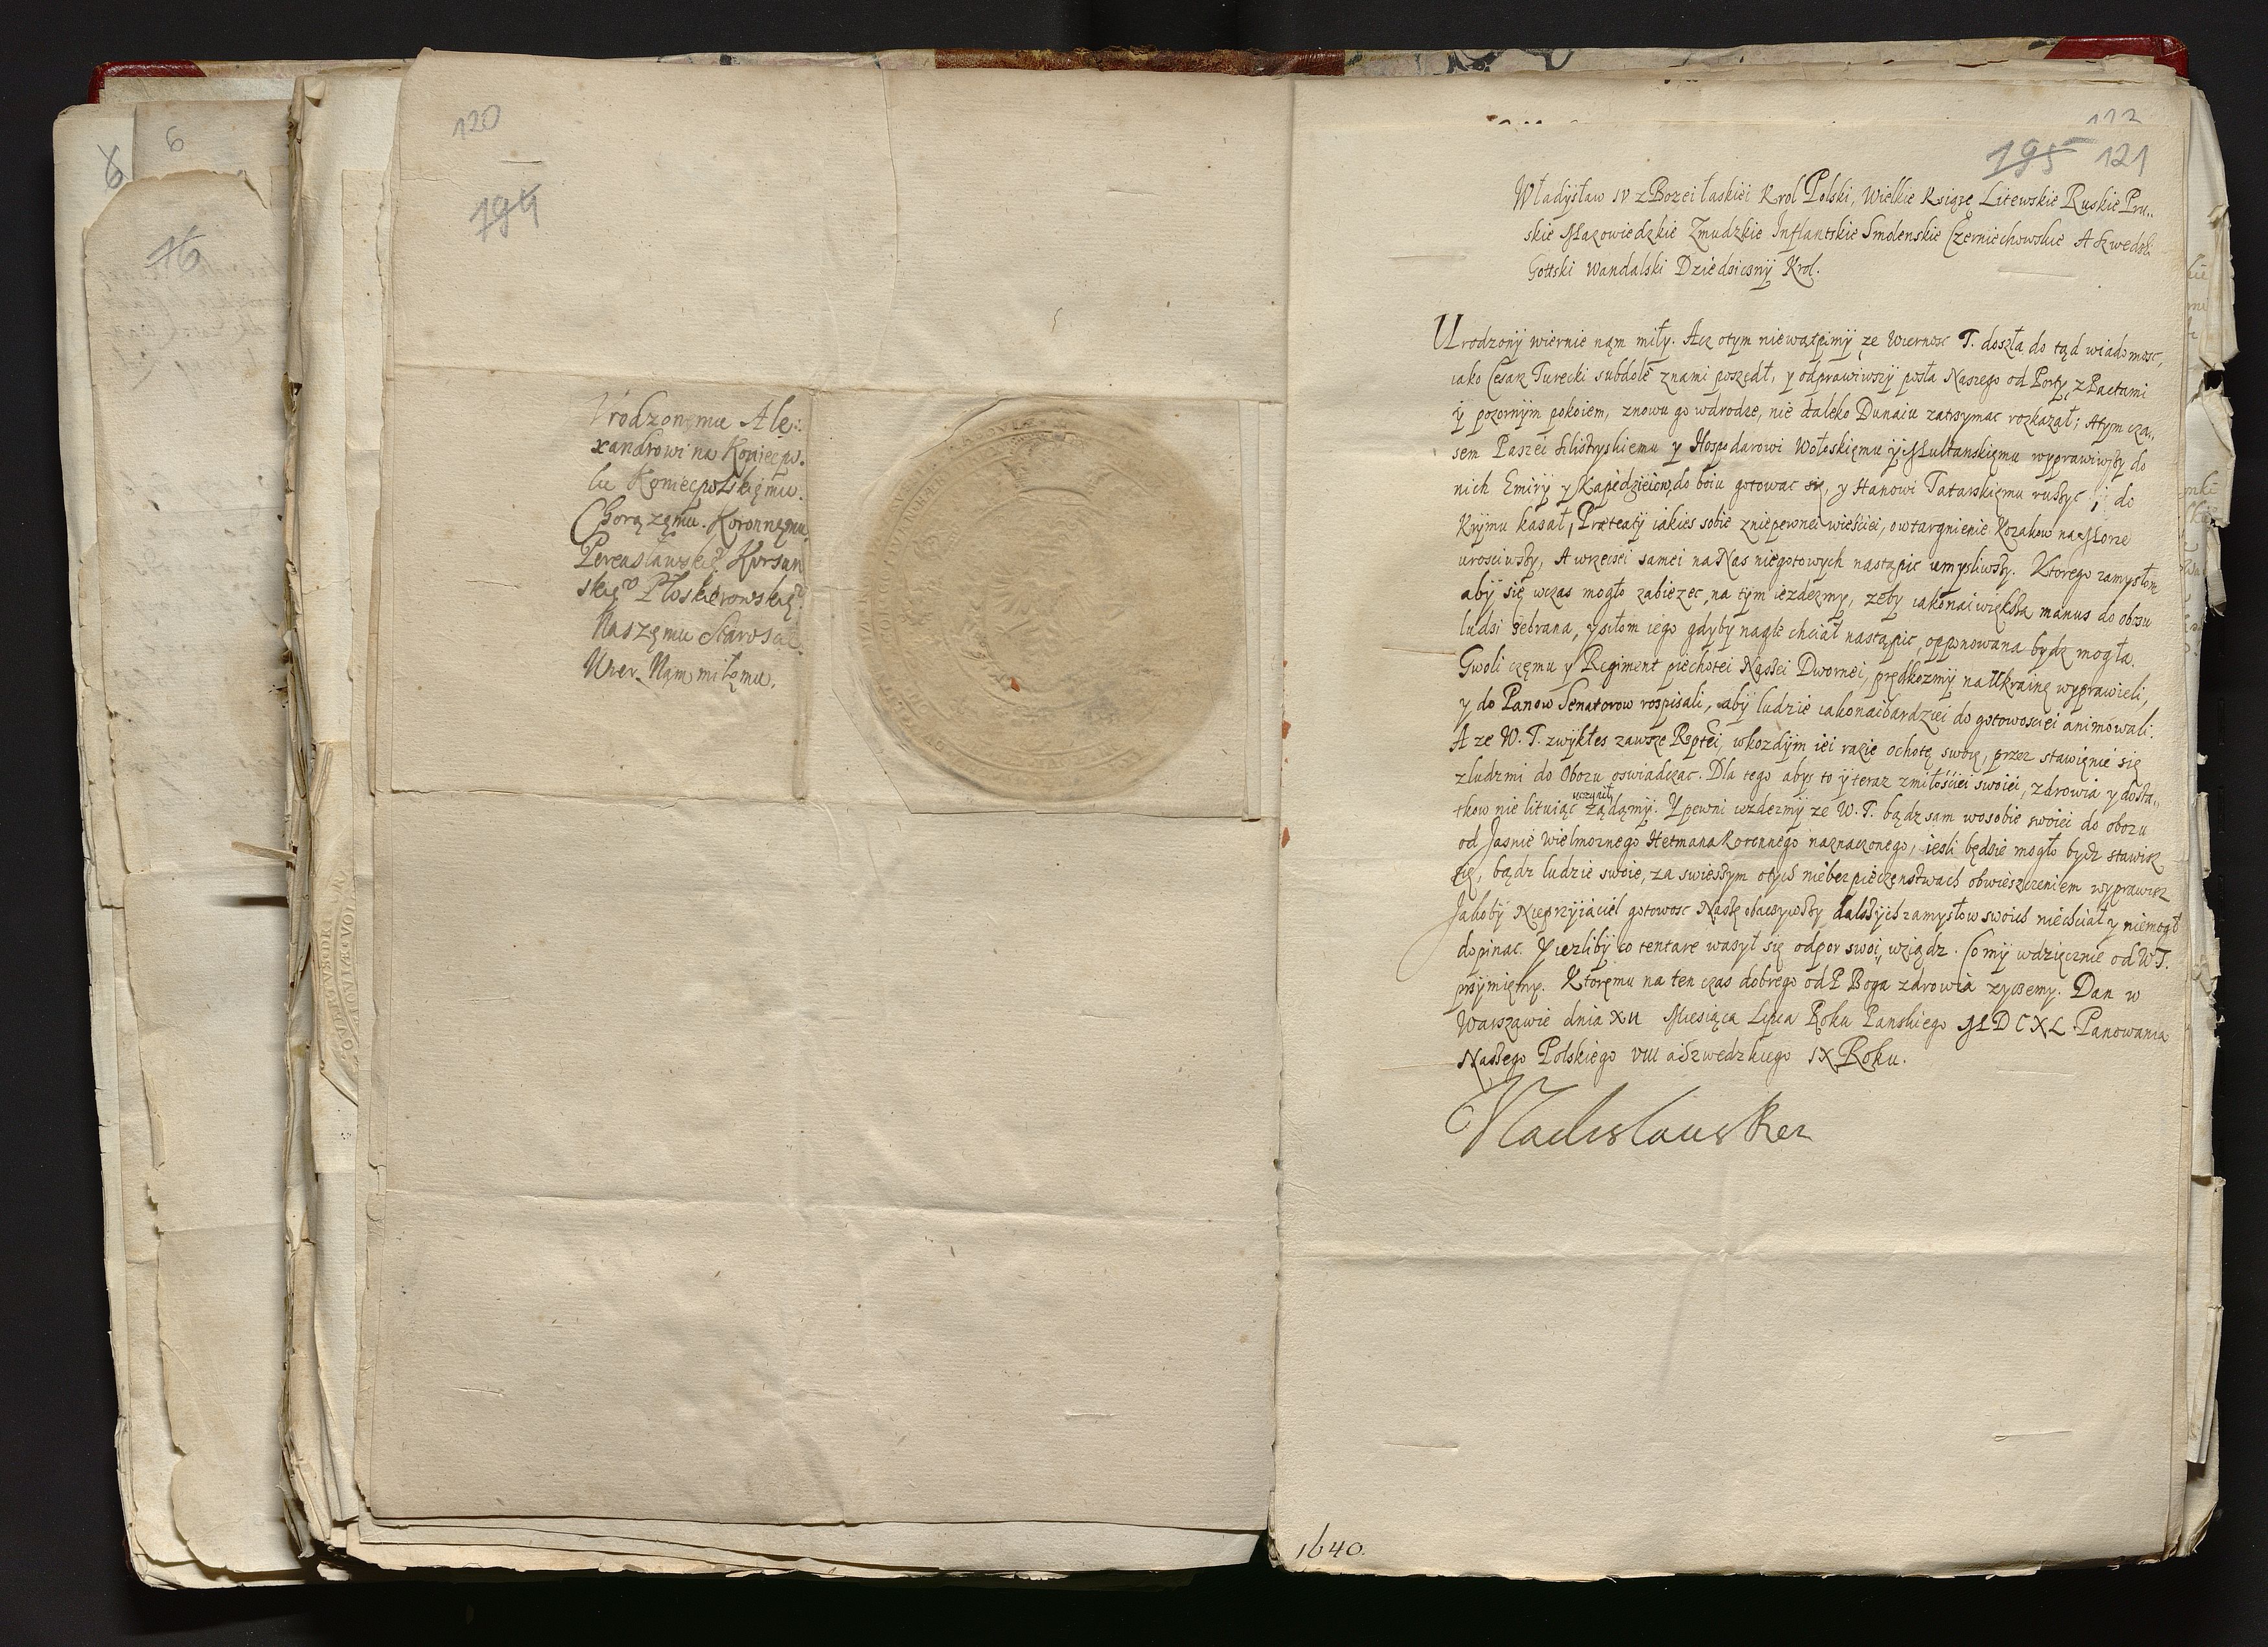 120
194
Urodzonęmu Ale:
xandrowi na Koniecpo.
lu Koniecpolskięmu.
Chorążęmu. Koronnęmu.
Pereasławskięo Korsun
skięo Płoskierowskięo
Naszęmu Staroscie
Uzer. Nąm miłęmu.
6
6
16
195 121
Władysław IV z Bozei łaskiei Krol Polski, Wielkie Ksiąze Litewskie Ruskie Pru..
skie Mazowiedzkie Zmudzkie Inflantskie Smolenskie Czerniechowskie A Szwedski
Gottski Wandalski Dziedziczny Krol.
Urodzony wiernie nąm miły. Acz otym niewątpimy ze Wiernosc T. doszła do tąd wiadomosc,
iako Cesarz Turecki subdole znami poszędł, y odprawiwszy posła Naszego od Porty z Pactami
y pozornym pokoiem, znowu go wdrodze, nie daleko Dunaiu zatrzymac rozkazał; Atym cza..
sem Paszei Silistryskiemu y Hospodarowi Wołoskięmu y Multanskięmu wyprawiwszy do
nich Emiry y Kapedzieiow, do boiu gotowac się, y Hanowi Tatarskięmu ruszyc ij do
Krymu kazał, Praetexty iakies sobie zniepewnei wieściei, owtargnienie Kozakow na Morze
urosciwszy, A wrzeczei samei na Nas niegotowych nastąpic umysliwszy. Ktorego zamysłom
aby się wczas mogło zabiezec, na tym iezdezmy, zeby iakonaiwiększa manus do obozu
ludzi zebrana, y siłom iego gdyby nagle chciał nastąpic, opponowana bydz mogła.
Gwoli czemu y Regiment piechotei Naszei Dwornei, prędkozmy na Ukrainę wyprawieli,
y do Panow Senatorow rospisali, aby ludzie iakonaibardziei do gotowosciei animowali.
A ze W. T. zwykłes zawsze Rzptei, wkozdym iei razie ochotę swoię, przez stawięnie się
zludzmi do Obozu oswiadczac. Dla tego abys to y teraz zmiłościei swoiei, zdrowia y dosta..
tkow nie lituiąc uczynił ządąmy. Y pewni iezdezmy ze W. T. bądz sam wosobie swoiei do obozu
od Jasnie Wielmoznego Hetmana Koronnego naznaczonego, iesli będzie mogło bydz stawisz
się, bądz ludzie swoie, za swieszszym otych niebezpieczęnstwach obwieszczeniem wyprawisz
Jakoby Nieprzyiaciel gotowosc Naszę obaczywszy dalszych zamysłow swoich niechciał y niemogł
dopinac. Y iezliby co tentare wazył się odpor swoi, wziądz. Co my wdzięcznie od W. T.
przyimięmy. Ktoręmu na ten czas dobrego od P Boga zdrowia zyczemy. Dan w
Warszawie dnia XII Miesiąca Lipca Roku Panskiego MDCXL. Panowania
Naszego Polskiego VIII a Szwedzkiego IX Roku.
Vladislaus Rex
1640.